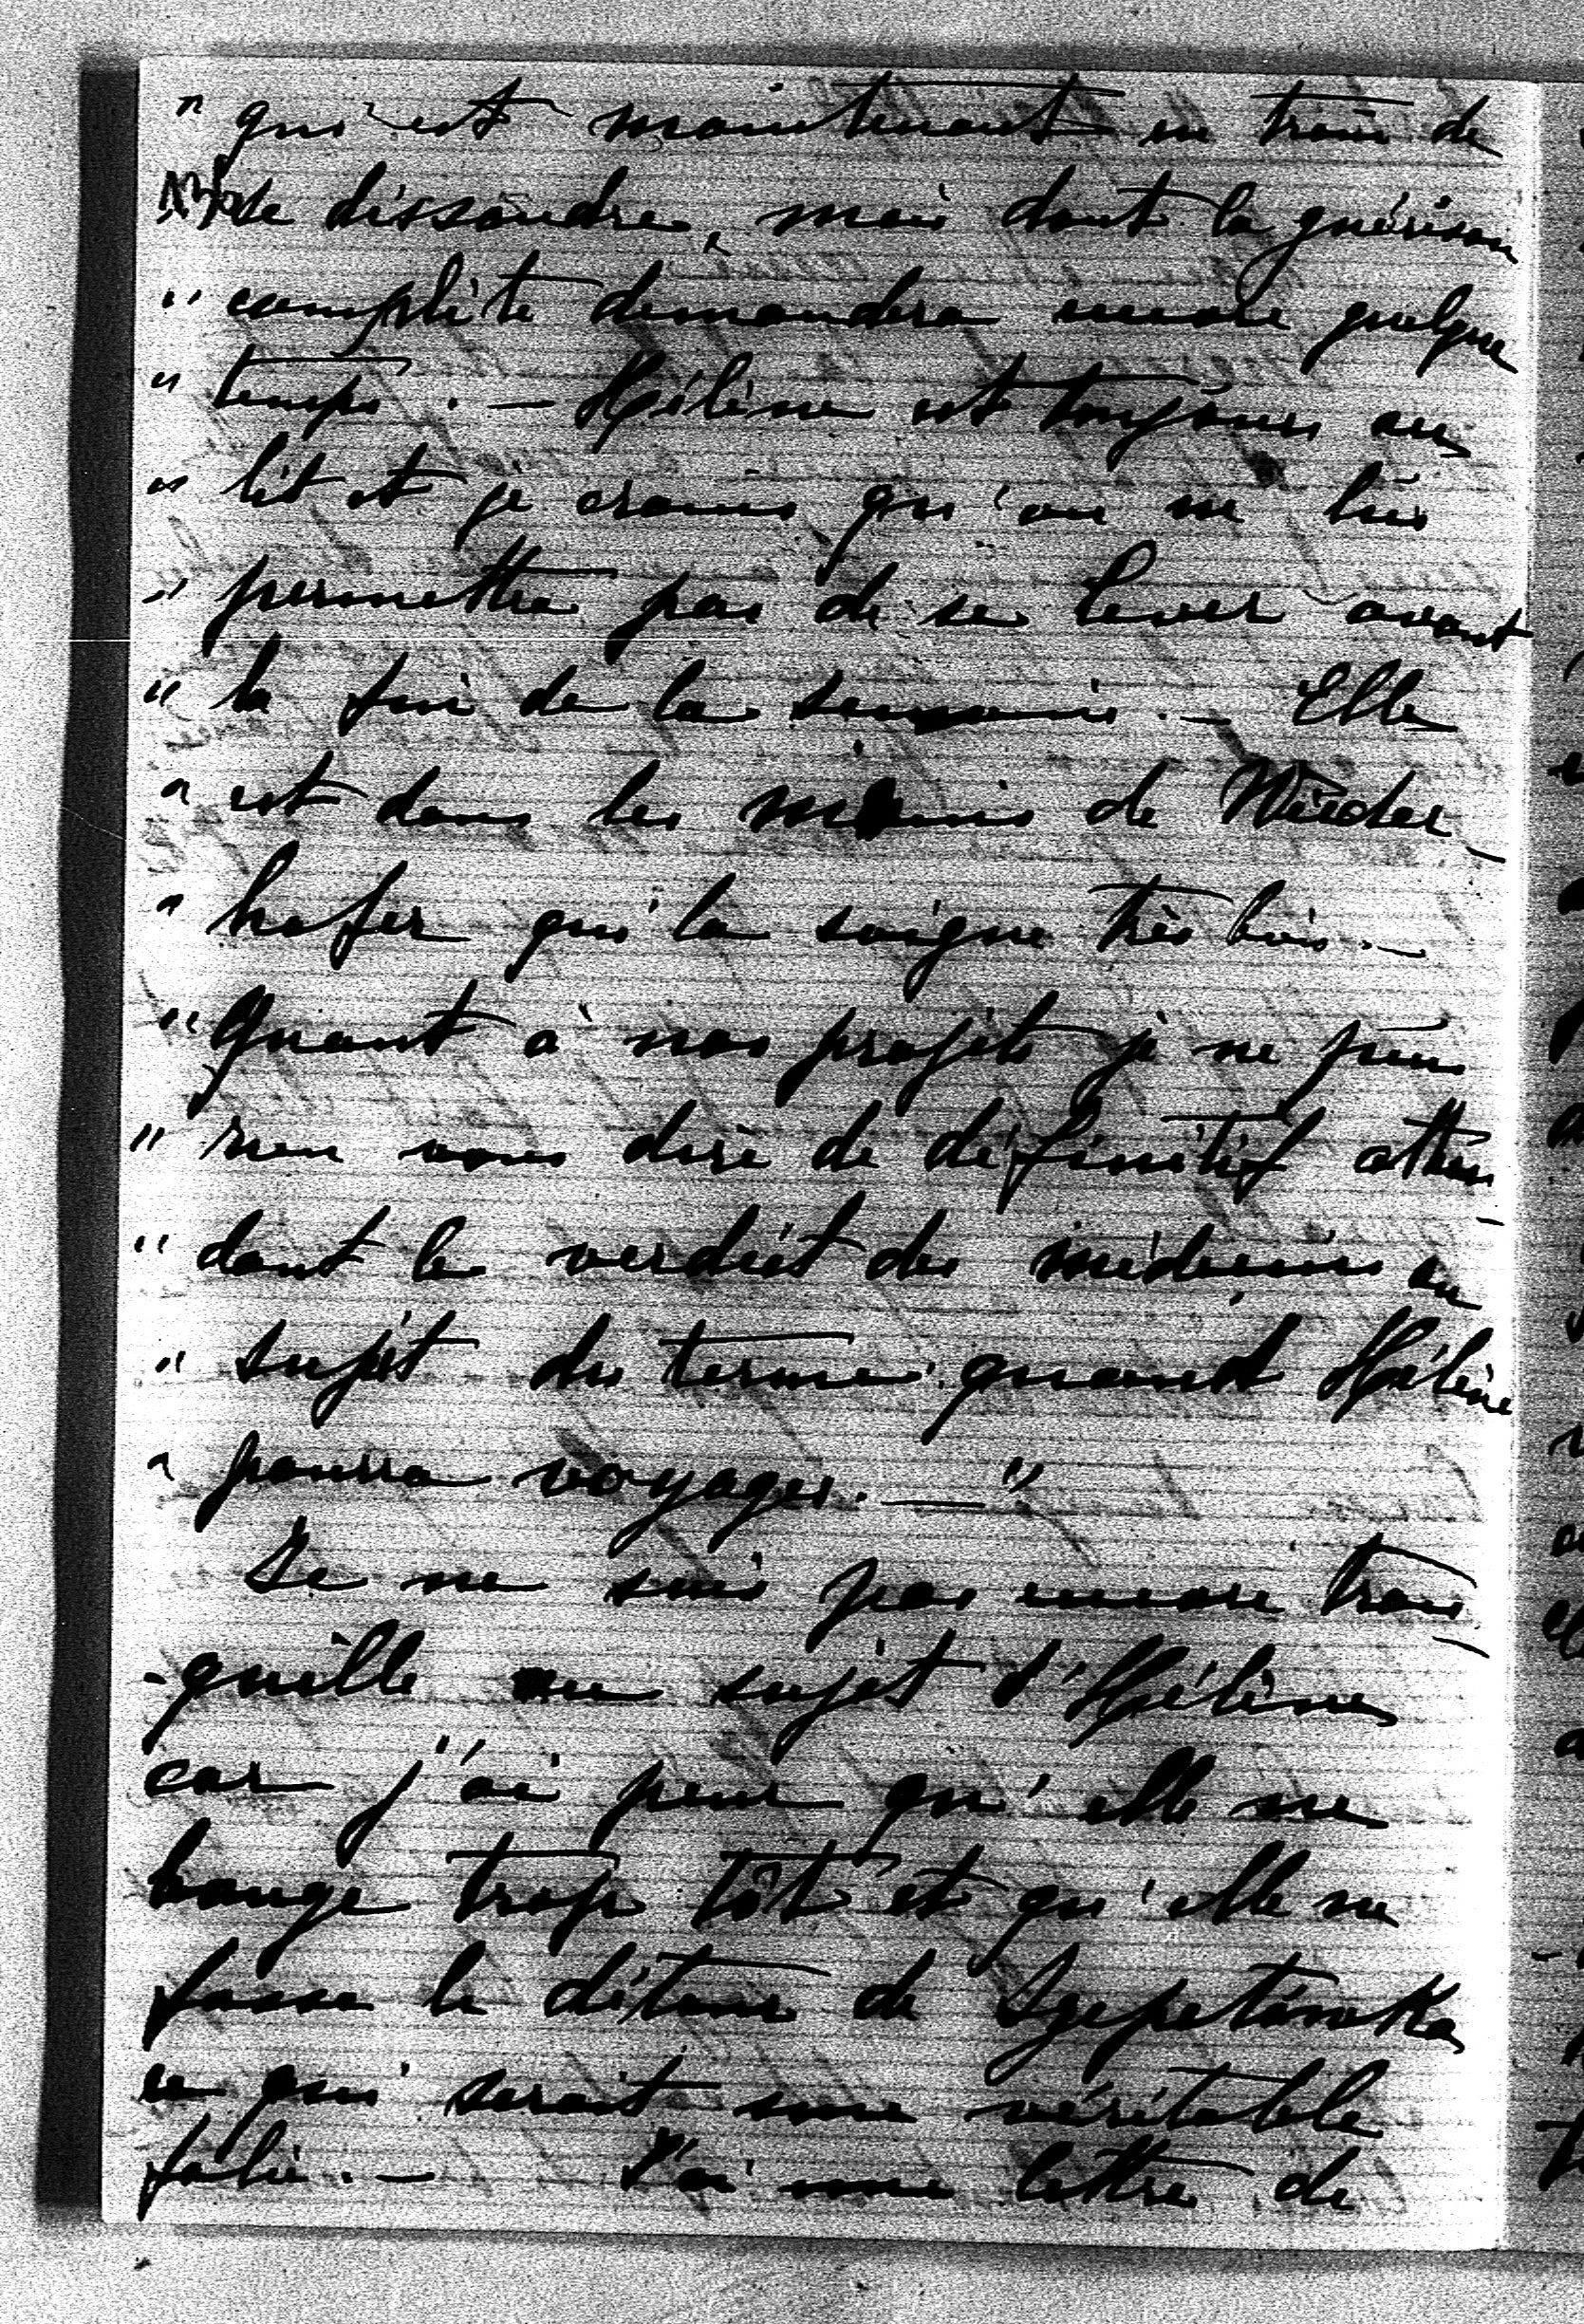 " qui est maintenant en train de
se dissoudre, mais dont la guérison
" complète demandera encore quelque
" temps. — Hélène est toujours au
" lit et je crains qu'on ne lui
" permettra pas de se lever avant
" la fin de la semaine. — Elle
" est dans les mains de Wieder-
" hofer qui la soigne très bien. —
" Quant à nos projets je ne puis
" rien vous dire de définitif atten-
" dant le verdict des médecins au
" sujet du terme quand Hélène
" pourra voyager. — "
Je ne suis pas encore tran-
-quille au sujet d'Hélène
car j'ai peur qu'elle ne
bouge trop tôt et qu'elle ne
fasse le détour de Szepetówka
ce qui serait une véritable
folie. — J'ai une lettre de